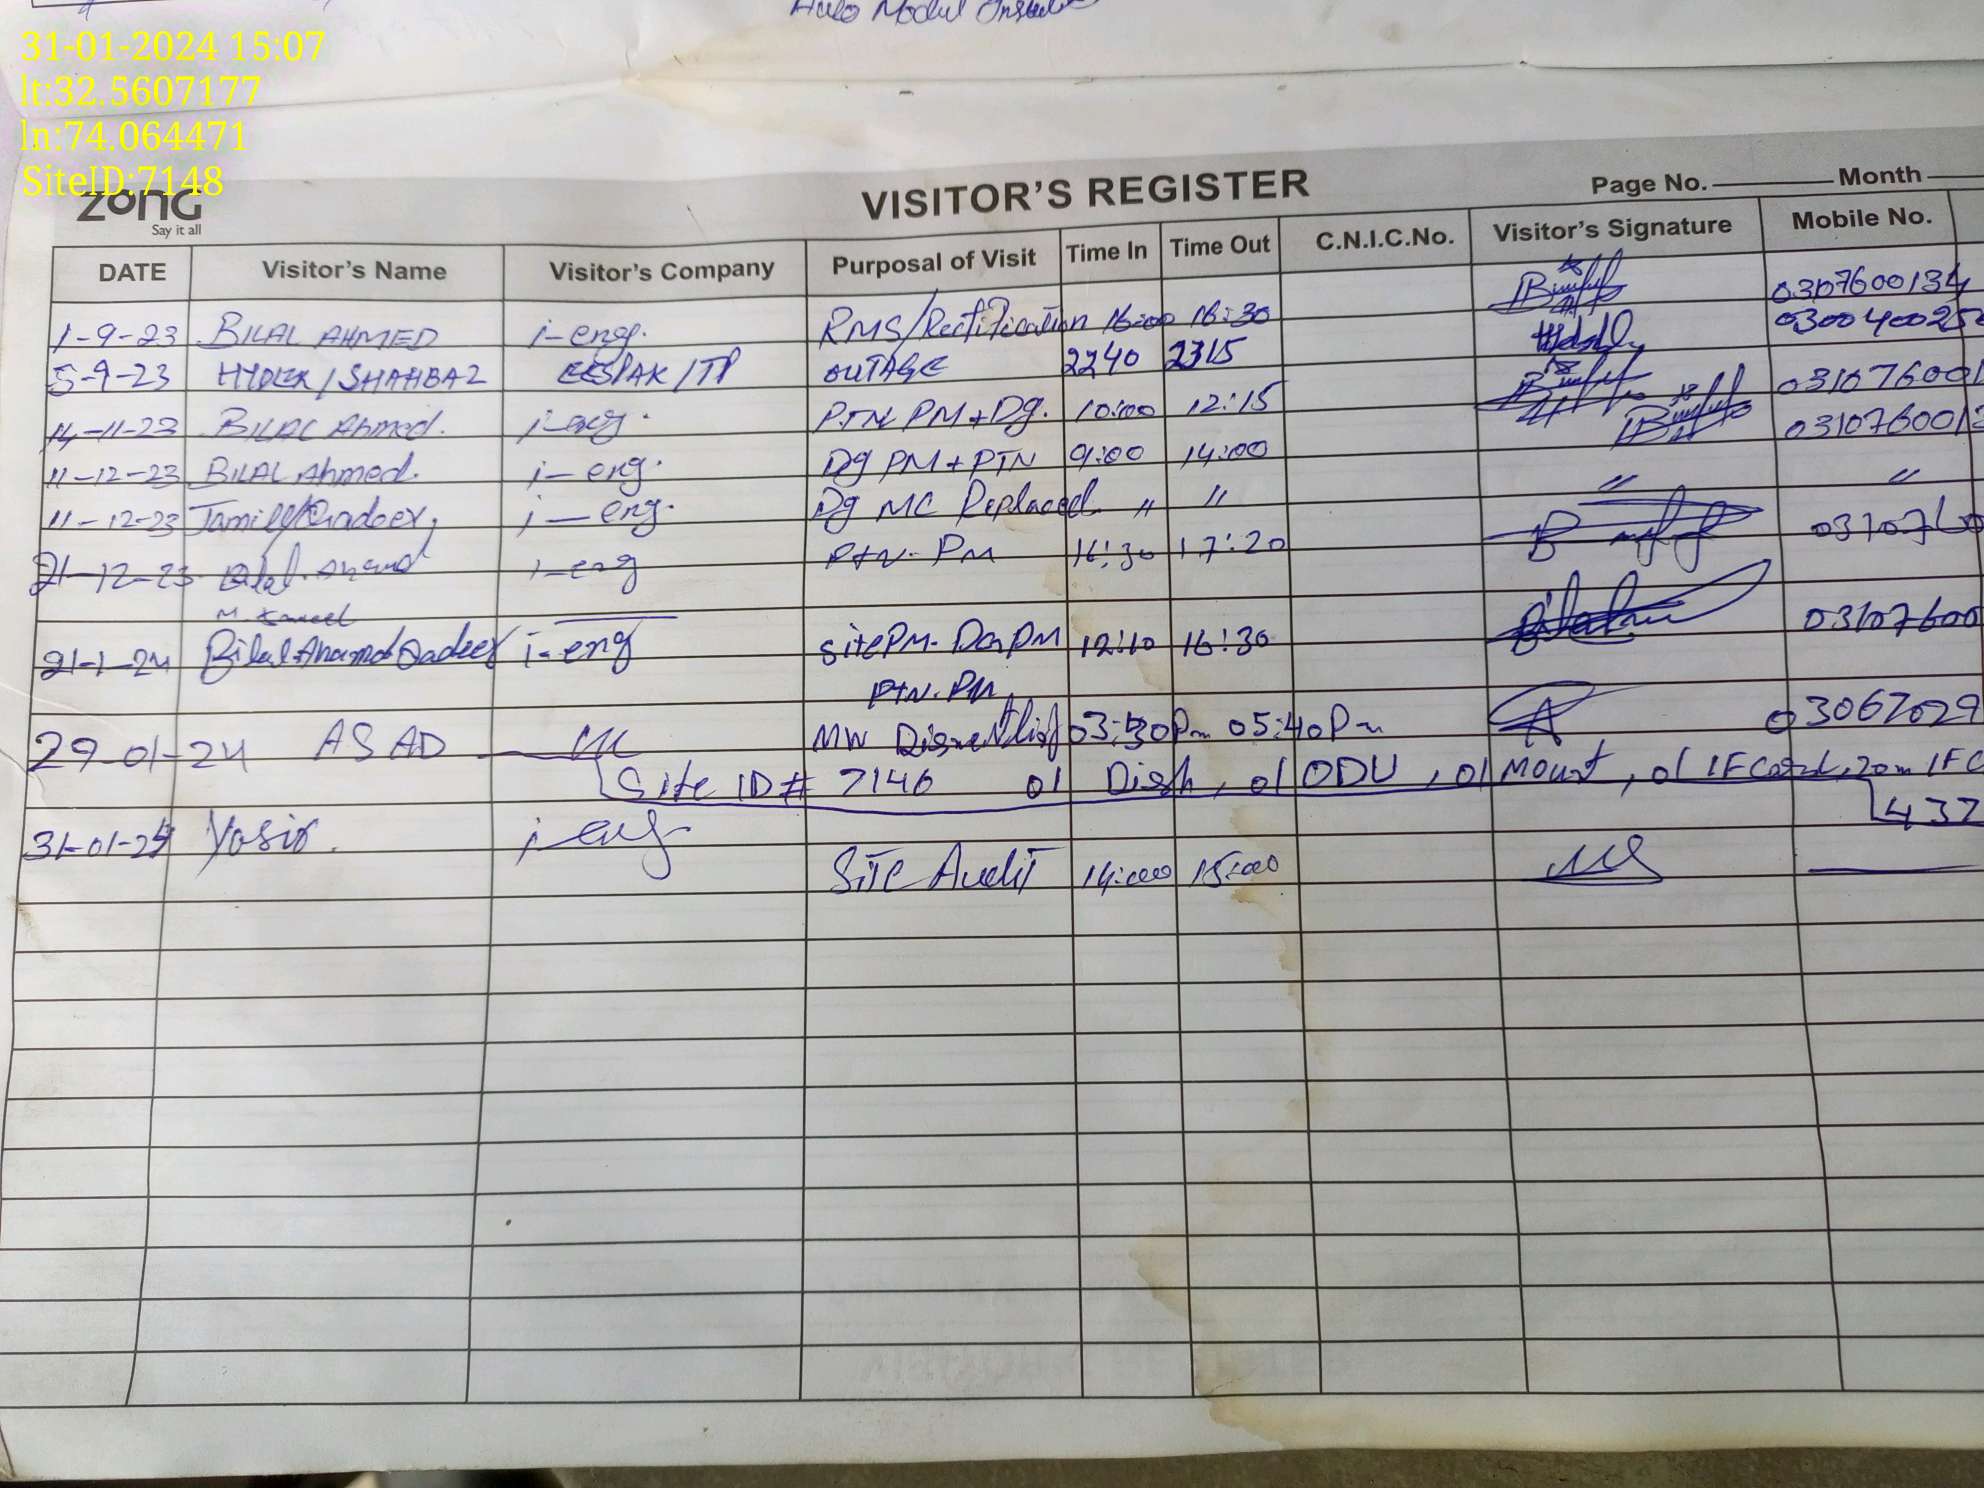 Auto Modul
31-01-2024 15:07
lt:32.5607177
ln:74.064471
SiteID:7148
zong
Say it all
VISITOR'S REGISTER
Page No. Month
DATE Visitor's Name Visitor's Company Purposal of Visit Time In Time Out C.N.I.C.No. Visitor's Signature Mobile No.
1-9-23 BILAL AHMED i-eng. RMS/Rectification 16:00 16:30 0307600134
5-9-23 HYDER/SHAHBAZ /TP OUTAGE 2240 2315 030040025
14-11-23 BILAL Ahmed. i-eng. PTN PM+Dg. 10:00 12:15 031076001
11-12-23 BILAL Ahmed. i-eng. Dg PM+PTN 9:00 14:00 031076001
11-12-23 Jamil/Qadeer, i-eng. Dg MC Replaced " " " "
21-12-23 Bilal Ahmad i-eng PTN-PM 16:30 17:20 0310760
M. Jameel
21-1-24 Bilal Ahamad Qadeer i-eng site PM-DG PM 12:10 16:30 03107600
PTN.PM
29-01-24 ASAD MW 03:30Pm 05:40Pm 03067029
Site ID# 7146 01 Dish, 01 ODU, 01 Mount, 01 IF Card, 20m IF C
432
31-01-24 Yasir. i-eng
Site Audit 14:000 15:00